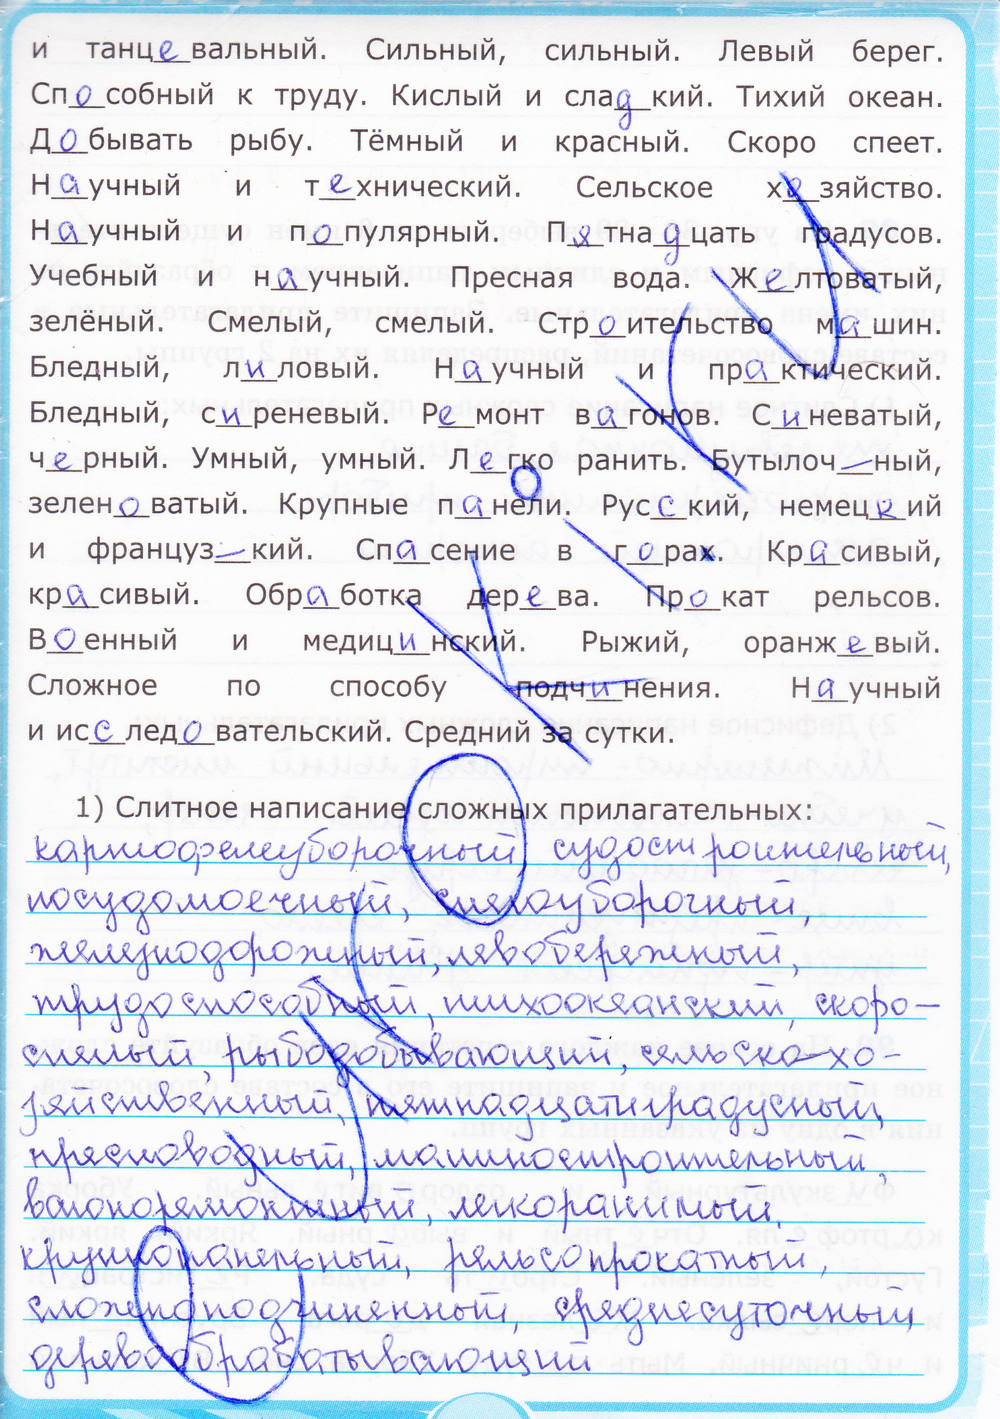 и танцевальный. Сильный, сильный. Левый берег.
Способный к труду. Кислый и сладкий. Тихий океан.
Добывать рыбу. Тёмный и красный. Скоро спеет.
Научный и технический. Сельское хозяйство.
Научный и популярный. Пятнадцать градусов.
Учебный и научный. Пресная вода. Желтоватый,
зелёный. Смелый, смелый. Стро_ительство машин.
Бледный, лиловый. Научный и практический.
Бледный, сиреневый. Ремонт вагонов. Синеватый,
черный. Умный, умный. Легко ранить. Бутылоч_ный,
зеленоватый. Крупные панели. Русский, немецкий
и француз_кий. Спасение в горах. Красивый,
красивый. Обработка дерева. Прокат рельсов.
Военный и медицинский. Рыжий, оранжевый.
Сложное по способу подчинения. Научный
и исследовательский. Средний за сутки.
1) Слитное написание сложных прилагательных:
картофелеуборочный, судостроительный,
посудомоечный, снегоуборочный,
железнодорожный, левобережный,
трудоспособный, тихоокеанский, скоро-
спелый, рыбодобывающий, сельско-хо-
зяйственный, пятнадцатиградусный,
пресноводный, машиностроительный,
вагоноремонтный, легкоранимый,
крупнопанельный, рельсопрокатный,
сложноподчиненный, среднесуточный,
деревообрабатывающий